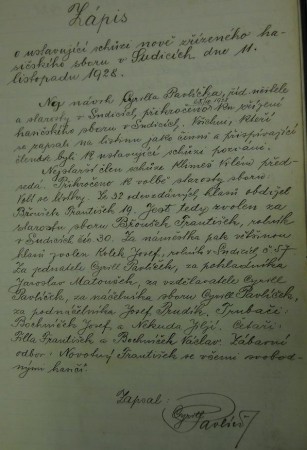 Zápis
o ustavující schůze nově zřízeného ha-
náckého sboru v Sudicích dne 11.
listopadu 1928.
Na návrh Cyrilla Pavlíčka, říd. učitele
a starosty v Sudicích, přikročeno zřízení
hanáckého sboru v Sudicích. Všichni, kteří
se zapsali na listinu jako činní a přispívající
členové byli k ustavující schůze pozváni.
Nejstarší člen schůze Klimeš Vilém před-
sedá. Přikročeno k volbě starosty sboru
Volí se lístky. Ze 32 odevzdaných hlasů obdržel
Běhůnek František 19. Jest tedy zvolen za
starostu sboru František, rolník
v Sudicích čís 30. Za náměstka pak většinou
hlasů zvolen Kolek Josef, rolník v Sudicích č. 57
Za jednatele Cyrill Pavlíček, za pokladníka
Jaroslav Matoušek, za vzdělavatele Cyrill
Pavlíček, za náčelníka sboru Cyrill Pavlíček,
za podnáčelníka Josef Prudík, Trubači:
Bochníček Josef a Nekuda Jiljí. Četaři:
Filla František a Bochníček Václav. Zábavní
odbor: Novotný František se všemi svobod-
nými hanáci.
Zapsal:
Cyrill
Pavlíček